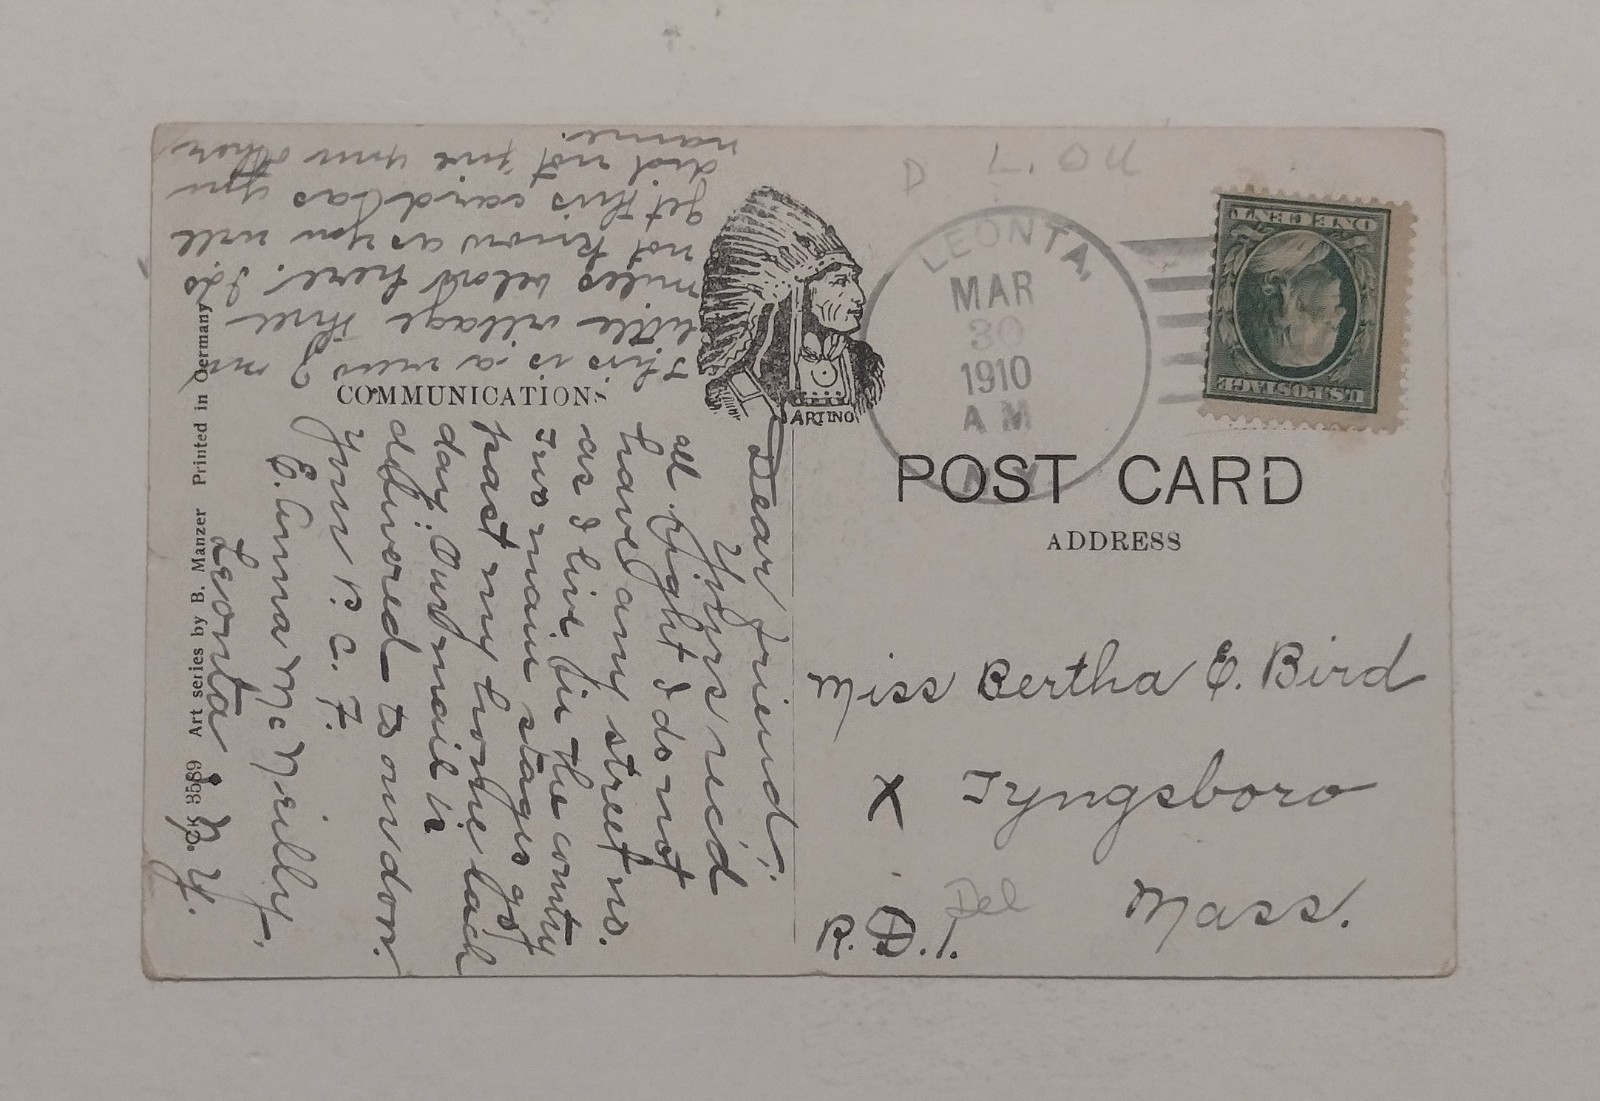 COMMUNICATIONS
Dear friend:
Yours rec'd
all right I do not
have any street no.
as I live in the contry
Two main stages go
past my home each
day. Our mail is
delivered to our door.
Yours P. C. F.
E. Anna McNeilly,
Leonta, N. Y.
This is a view I our
little village three
miles below here. I do
not know as you will
get this card as you
did not give your other
name.
CK 3589 Art series by B. Manzer Printed in Germany
ARTINO
D L. OU
LEONTA,
MAR
30
1910
A M
N.Y.
ONE CENT
U.S. POSTAGE
POST CARD
ADDRESS
Miss Bertha E. Bird
X Tyngsboro
Del Mass.
R. D. 1.